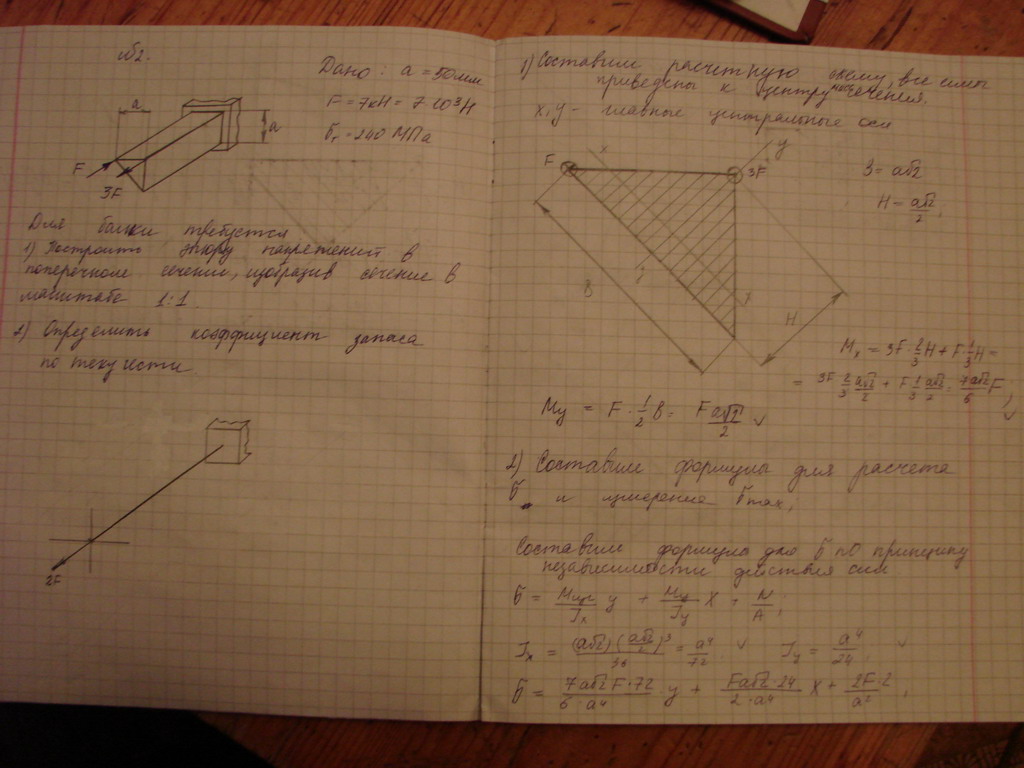 №2.
Дано: a = 50 мм
F = 7кН = 7·10³Н
σт = 240 МПа
a
a
F
3F
Для балки требуется
1) Построить эпюру напряжений в
поперечном сечении, изобразив сечение в
масштабе 1:1.
2) Определить коэффициент запаса
по текучести
2F
1) Составим расчетную схему, все силы
приведены к центру сечения.
x, y - главные центральные оси
F
x
y
3F
B
H
B = a√2
H = a√2/2,
Mx = 3F·2/3H + F·1/3H =
= 3F·2/3 a√2/2 + F 1/3 a√2/2 = 7a√2/6 F;
My = F·1/2 B = F a√2/2 ✓
2) Составим формулы для расчета
σ и измерение σmax;
Составим формулу для σ по принципу
независимости действия сил
σ = Mx/Jx y + My/Jy x + N/A;
Jx = (a√2)(a√2/2)³/36 = a⁴/72 ✓ Jy = a⁴/24. ✓
σ = 7a√2F·72/6·a⁴ y + Fa√2·24/2·a⁴ x + 2F·2/a²;